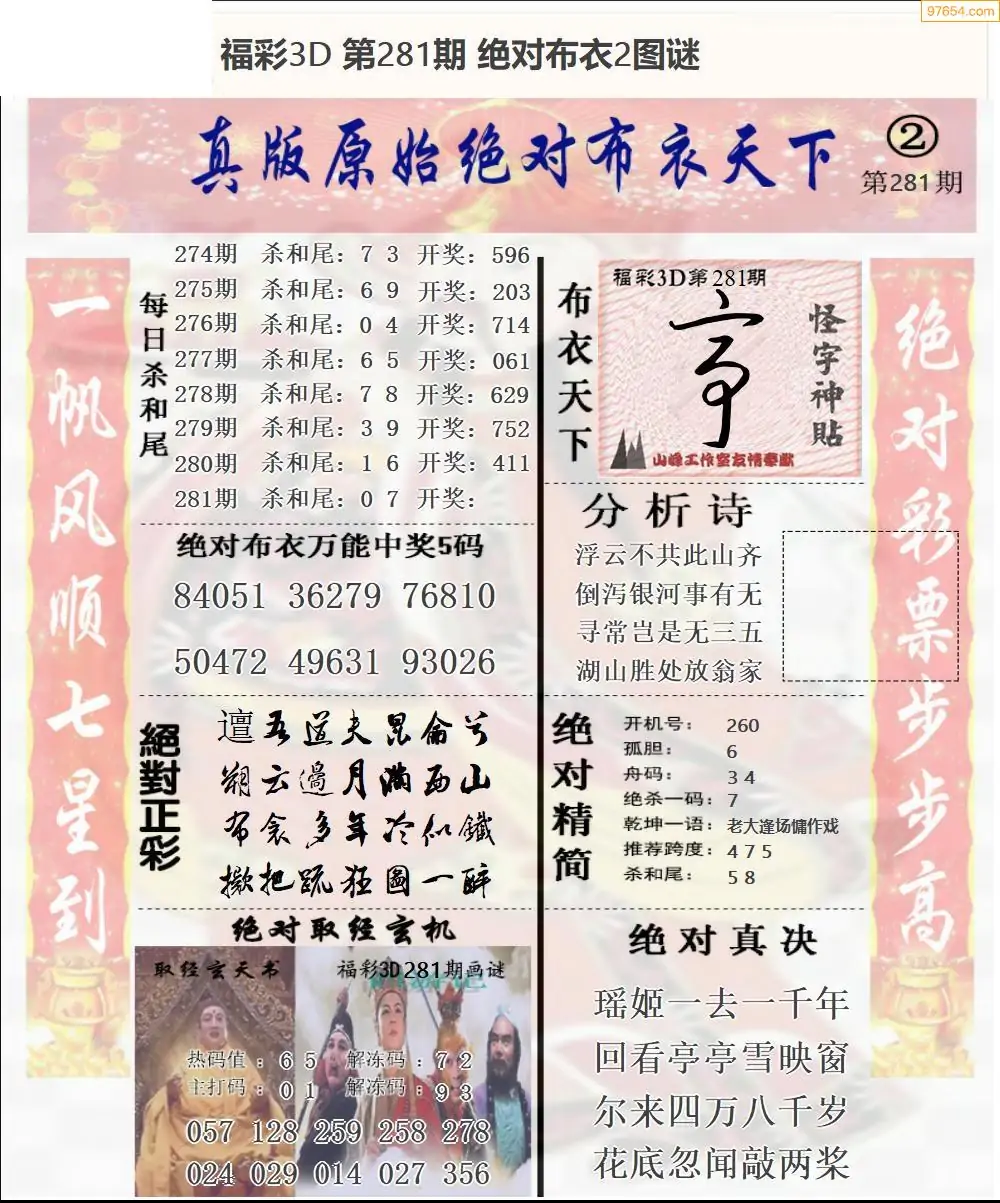 97654.com
福彩3D 第281期 绝对布衣2图谜
真版原始绝对布衣天下
②
第281期
一帆风顺七星到
每日杀和尾
274期 杀和尾：7 3 开奖：596
275期 杀和尾：6 9 开奖：203
276期 杀和尾：0 4 开奖：714
277期 杀和尾：6 5 开奖：061
278期 杀和尾：7 8 开奖：629
279期 杀和尾：3 9 开奖：752
280期 杀和尾：1 6 开奖：411
281期 杀和尾：0 7 开奖：
绝对布衣万能中奖5码
84051 36279 76810
50472 49631 93026
絕對正彩
邅吾道夫昆侖兮
朔云邊月满西山
布衾多年冷似鐵
撒把疏狂圖一醉
绝对取经玄机
取经玄天书
福彩3D281期画谜
热码值：6 5 解冻码：7 2
主打码：0 1 解冻码：9 3
057 128 259 258 278
024 029 014 027 356
布衣天下
福彩3D第281期
怪字神貼
山峰工作室友情奉献
分析诗
浮云不共此山齐
倒泻银河事有无
寻常岂是无三五
湖山胜处放翁家
绝对精简
开机号： 260
孤胆： 6
舟码： 3 4
绝杀一码： 7
乾坤一语： 老大逢场慵作戏
推荐跨度： 4 7 5
杀和尾： 5 8
绝对真决
瑶姬一去一千年
回看亭亭雪映窗
尔来四万八千岁
花底忽闻敲两桨
绝对彩票步步高